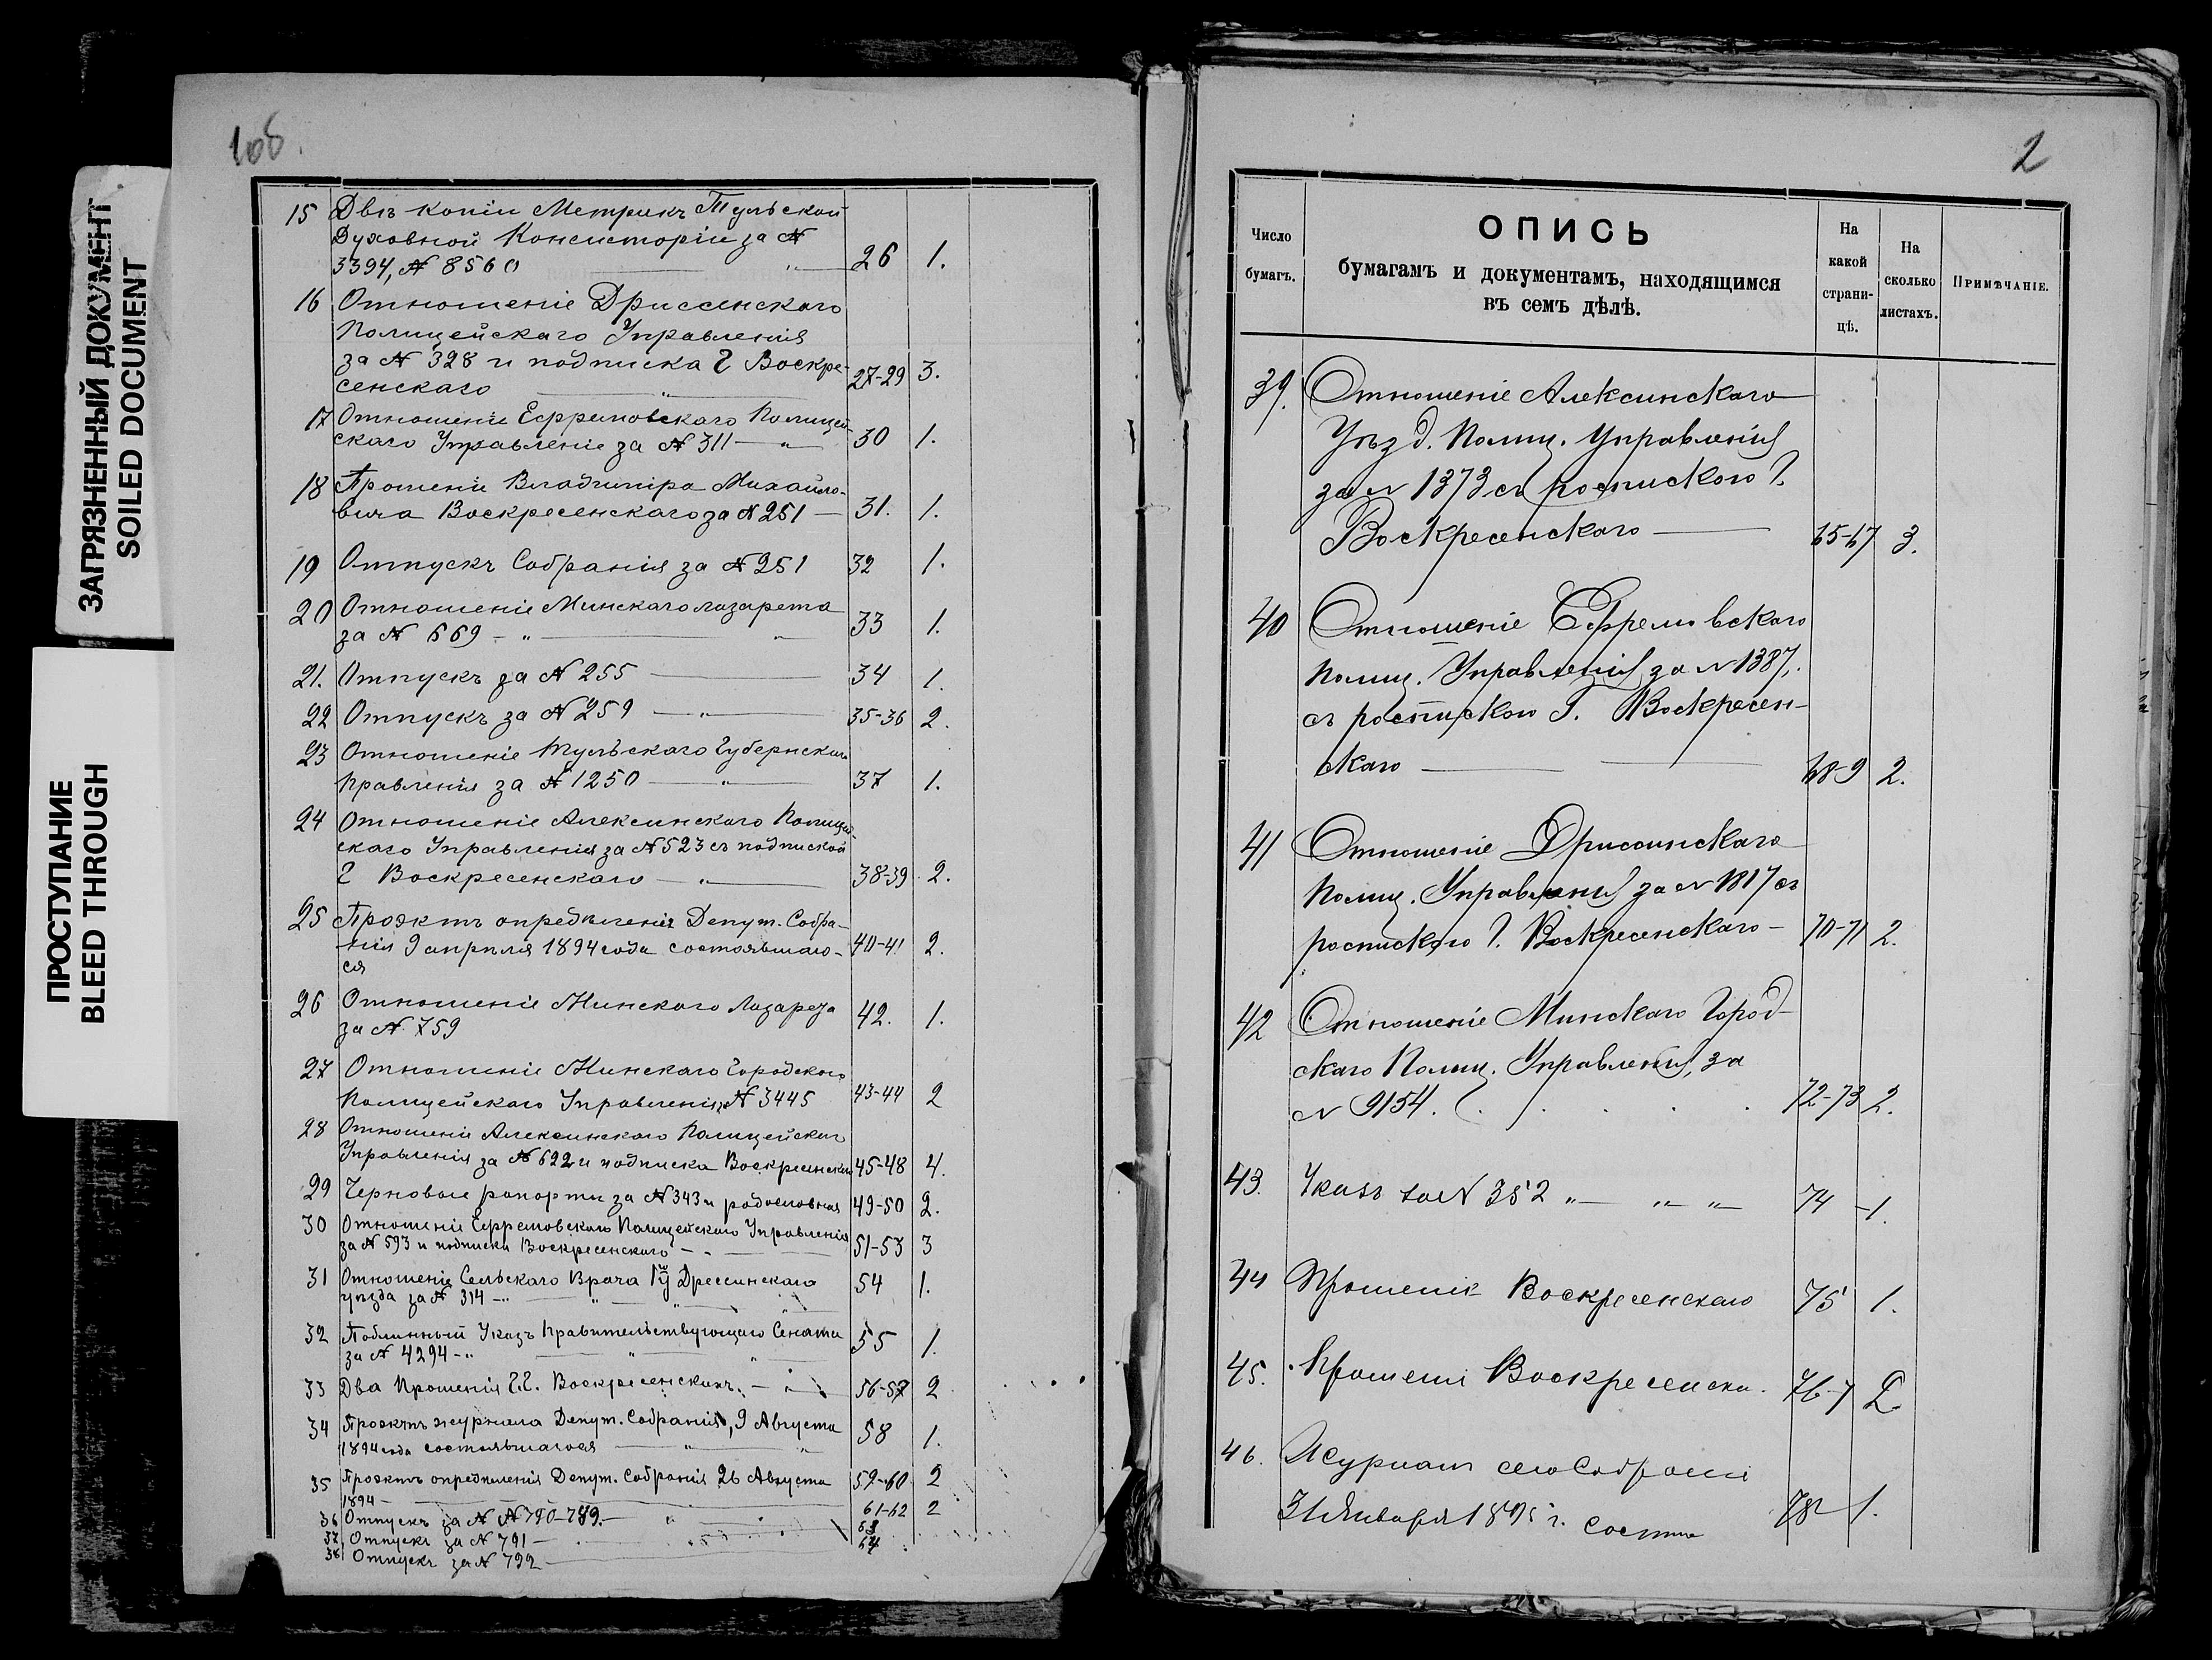 ЗАГРЯЗНЕННЫЙ ДОКУМЕНТ
SOILED DOCUMENT
ПРОСТУПАНИЕ
BLEED THROUGH
1об.
15 Двѣ копіи Метрикъ Тульской
Духовной Консисторіи за №
3394, № 8560 — 26 1.
16 Отношеніе Дриссенскаго
Полицейскаго Управленія
за № 328 и подписка г Воскре-
сенскаго — 27-29 3.
17 Отношеніе Ефремовскаго Полицей-
скаго Управленіе за № 311 — 30 1.
18 Прошеніе Владиміра Михайло-
вича Воскресенскаго за № 251 — 31. 1.
19 Отпускъ Собранія за № 251 32 1.
20 Отношеніе Минскаго лазарета
за № 669 — 33 1.
21. Отпускъ за № 255 — 34 1.
22 Отпускъ за № 259 — 35-36 2.
23 Отношеніе Тульскаго Губернскаго
Правленія за № 1250 — 37 1.
24 Отношеніе Алексинскаго Полицей-
скаго Управленія за № 523 съ подпиской
г Воскресенскаго — 38-39 2.
25 Проэктъ опредѣленія Депут. Собра-
нія 9 апрѣля 1894 года состоявшаго- 40-41 2.
ся
26 Отношеніе Минскаго Лазарета
за № 759 42. 1.
27 Отношеніе Минскаго Городского
Полицейскаго Управленія № 3445 43-44 2
28 Отношеніе Алексинскаго Полицейскаго
Управленія за № 622 и подписка Воскресенскаго 45-48 4.
29 Черновые рапорты за № 343 и родословная 49-50 2.
30 Отношеніе Ефремовскаго Полицейскаго Управленія
за № 593 и подписка Воскресенскаго — 51-53 3
31 Отношеніе Сельскаго Врача Дрессинскаго
уѣзда за № 314 — 54 1.
32 Подлинный Указъ Правительствующаго Сената
за № 4294 — 55 1.
33 Два Прошенія Г.Г. Воскресенскихъ. — 56-57 2
34 Проэктъ журнала Депут. Собранія, 9 Августа
1894 года состоявшагося — 58 1.
35 Проэктъ опредѣленія Депут. Собранія 26 Августа
1894 — 59-60 2
36 Отпускъ за № № 790-789. — 61-62 2
37 Отпускъ за № 791 — 63
38 Отпускъ за № 792 — 64
2
Число
бумагъ.
ОПИСЬ
бумагамъ и документамъ, находящимся
въ семъ дѣлѣ.
На
какой
страни-
цѣ.
На
сколько
листахъ.
Примѣчаніе.
39. Отношеніе Алексинскаго
Уѣзд. Полиц. Управленія
за № 1373 съ роспискою г.
Воскресенскаго — 65-67 3.
40 Отношеніе Ефремовскаго
Полиц. Управленія за № 1387,
съ роспискою Г. Воскресен-
скаго — 68-9 2.
41 Отношеніе Дриссинскаго
Полиц. Управленія за № 1817 съ
роспискою г. Воскресенскаго — 70-71 2.
42 Отношеніе Минскаго Город-
скаго Полиц. Управленія, за
№ 9154. 72-73 2.
43. Указъ за № 352 „— „ „— 74 1.
44 Прошеніе Воскресенскаго 75 1.
45. Прошеніе Воскресенск. 76-7 2
46. Журналъ сего Собранія
31 Января 1895 г. состоя 78 1.